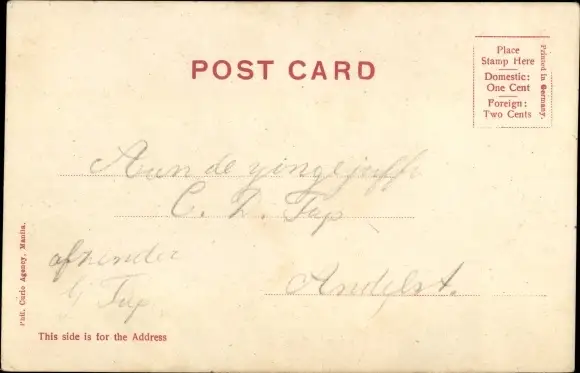 POST CARD
Place
Stamp Here
Domestic:
One Cent
Foreign:
Two Cents
Printed in Germany.
Aan de
C. D. Tap
afzender
Tap
Andelst.
Phil. Curio Agency, Manila.
This side is for the Address